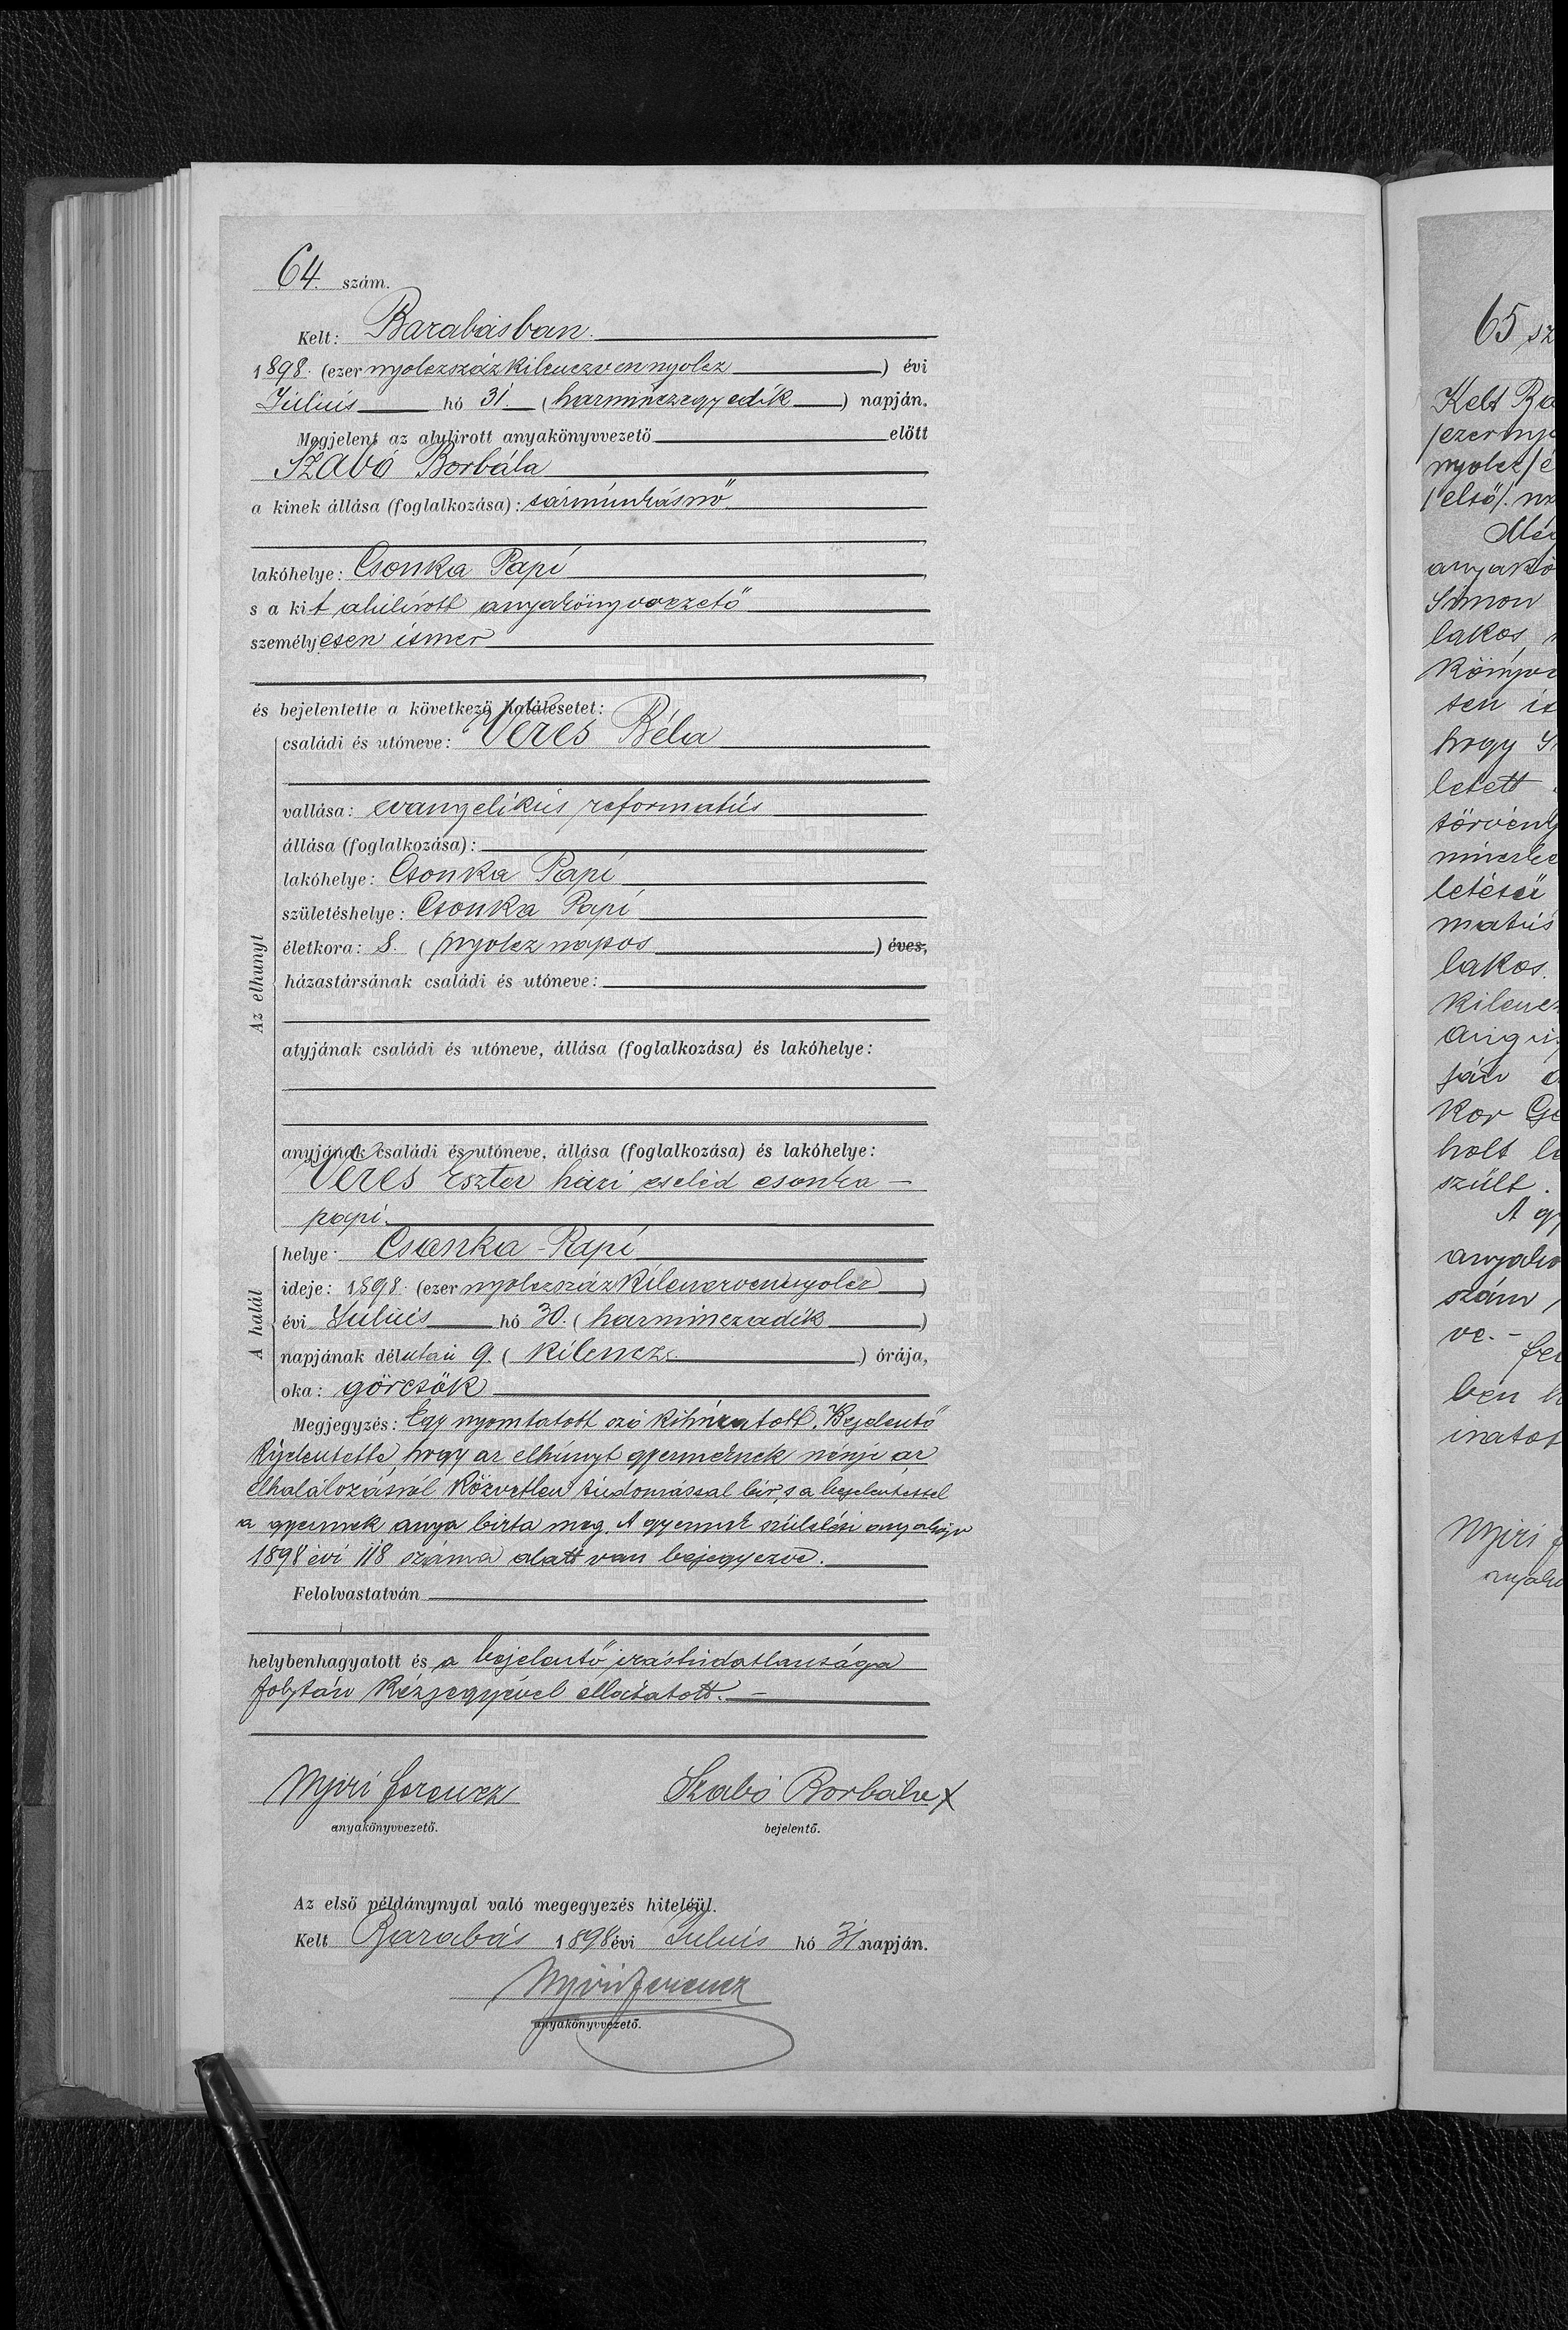 64. szám.
Kelt: Barabásban.
1898. (ezer nyolczszázkilenczvennyolcz) évi
Július hó 31. (harminczegyedik) napján.
Megjelent az alulirott anyakönyvvezető előtt
Szabó Borbála
a kinek állása (foglalkozása):
lakóhelye: Csonka Papi
s a kit alulírott anyakönyvvezető
személyesen ismer
és bejelentette a következő halálesetet:
Az elhunyt
családi és utóneve: Veres Béla
vallása: evangelikús reformatús
állása (foglalkozása):
lakóhelye: Csonka Papi
születéshelye: Csonka Papi
életkora: 8. (nyolcz napos) éves,
házastársának családi és utóneve:
atyjának családi és utóneve, állása (foglalkozása) és lakóhelye:
anyjának családi és utóneve, állása (foglalkozása) és lakóhelye:
Veres Eszter házi cseléd csonka-
papi.
A halál
helye: Csonka-Papi
ideje: 1898. (ezer nyolczszázkilenczvennyolcz)
évi Július hó 30. (harminczadik)
napjának délután 9. (kilencz) órája,
oka: görcsök
Megjegyzés: Egy nyomtatott szó kihúzatott. Bejelentő
kijelentette, hogy az elhúnyt gyermeknek nénje az
elhalálozásról közvetlen túdomással bír, s a bejelentéssel
a gyermek anya bizta meg. A gyermek születési anyakönyv
1898 évi 118 száma alatt van bejegyezve.
Felolvastatván
helybenhagyatott és a bejelentő irástúdatlansága
folytán kézjegyével elláttatott. -
Nyiri Ferencz Szabó Borbála x
anyakönyvvezető. bejelentő.
Az első példánynyal való megegyezés hiteléül.
Kelt Barabás 1898 évi Július hó 31 napján.
Nyiri Ferencz
anyakönyvvezető.
65 sz
Kelt Ba
/ezer nyo
nyolcz/ é
/első/. na
Meg
anyakö
Simon
lakos,
könyv
ten is
hogy
letett
törvény
matús
lakos.
kilencz
ján
kor Ge
holt le
szült.
A gy
anyakö
szám
ve. -
ben
inatot
Nyiri f
anyakö